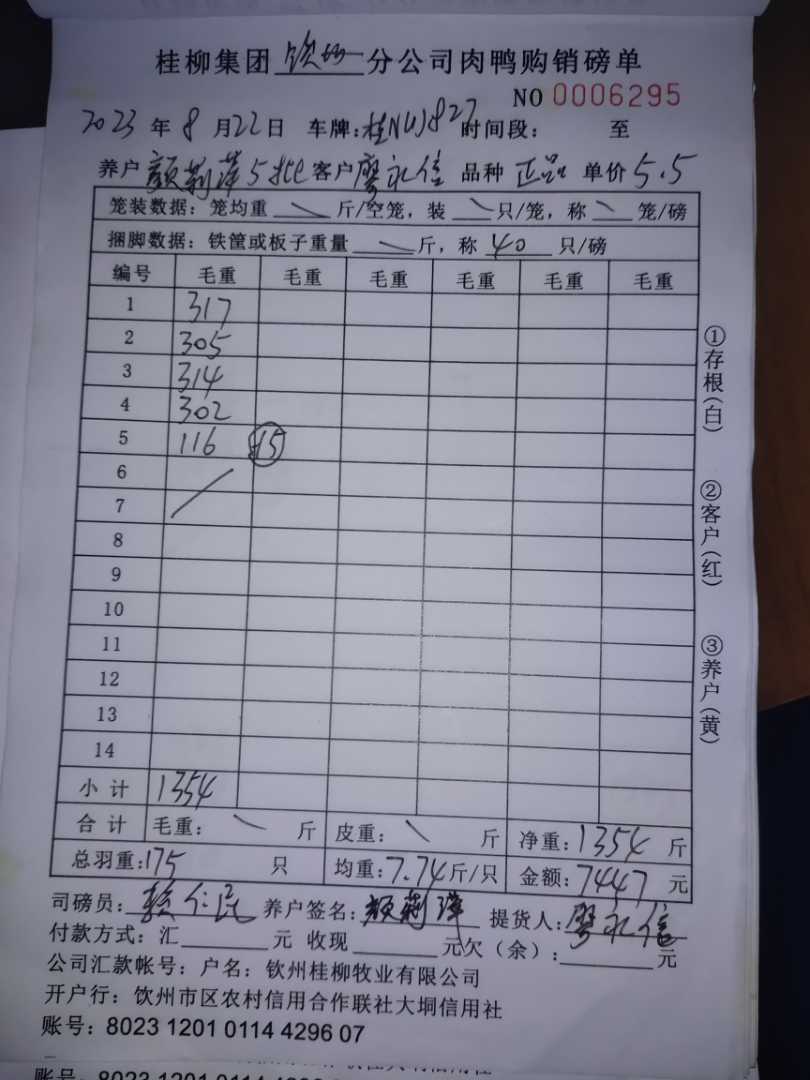 桂柳集团 钦州 分公司肉鸭购销磅单
NO 0006295
2023 年 8 月 22 日 车牌:桂NUJ827 时间段: 至
养户 颜莉萍5批 客户 廖礼信 品种 正品 单价 5.5
笼装数据:笼均重 斤/空笼,装 只/笼,称 笼/磅
捆脚数据:铁筐或板子重量 斤,称 40 只/磅
编号 毛重 毛重 毛重 毛重 毛重 毛重
1 317
2 305
3 314
4 302
5 116 15
6
7
8
9
10
11
12
13
14
小计 1354
合计 毛重: 斤 皮重: 斤 净重:1354 斤
总羽重:175 只 均重:7.74 斤/只 金额:7447 元
司磅员: 养户签名:颜莉萍 提货人:廖礼信
付款方式:汇 元 收现 元欠(余): 元
公司汇款帐号:户名:钦州桂柳牧业有限公司
开户行:饮州市区农村信用合作联社大垌信用社
账号:8023 1201 0114 4296 07
①存根(白)
②客户(红)
③养户(黄)